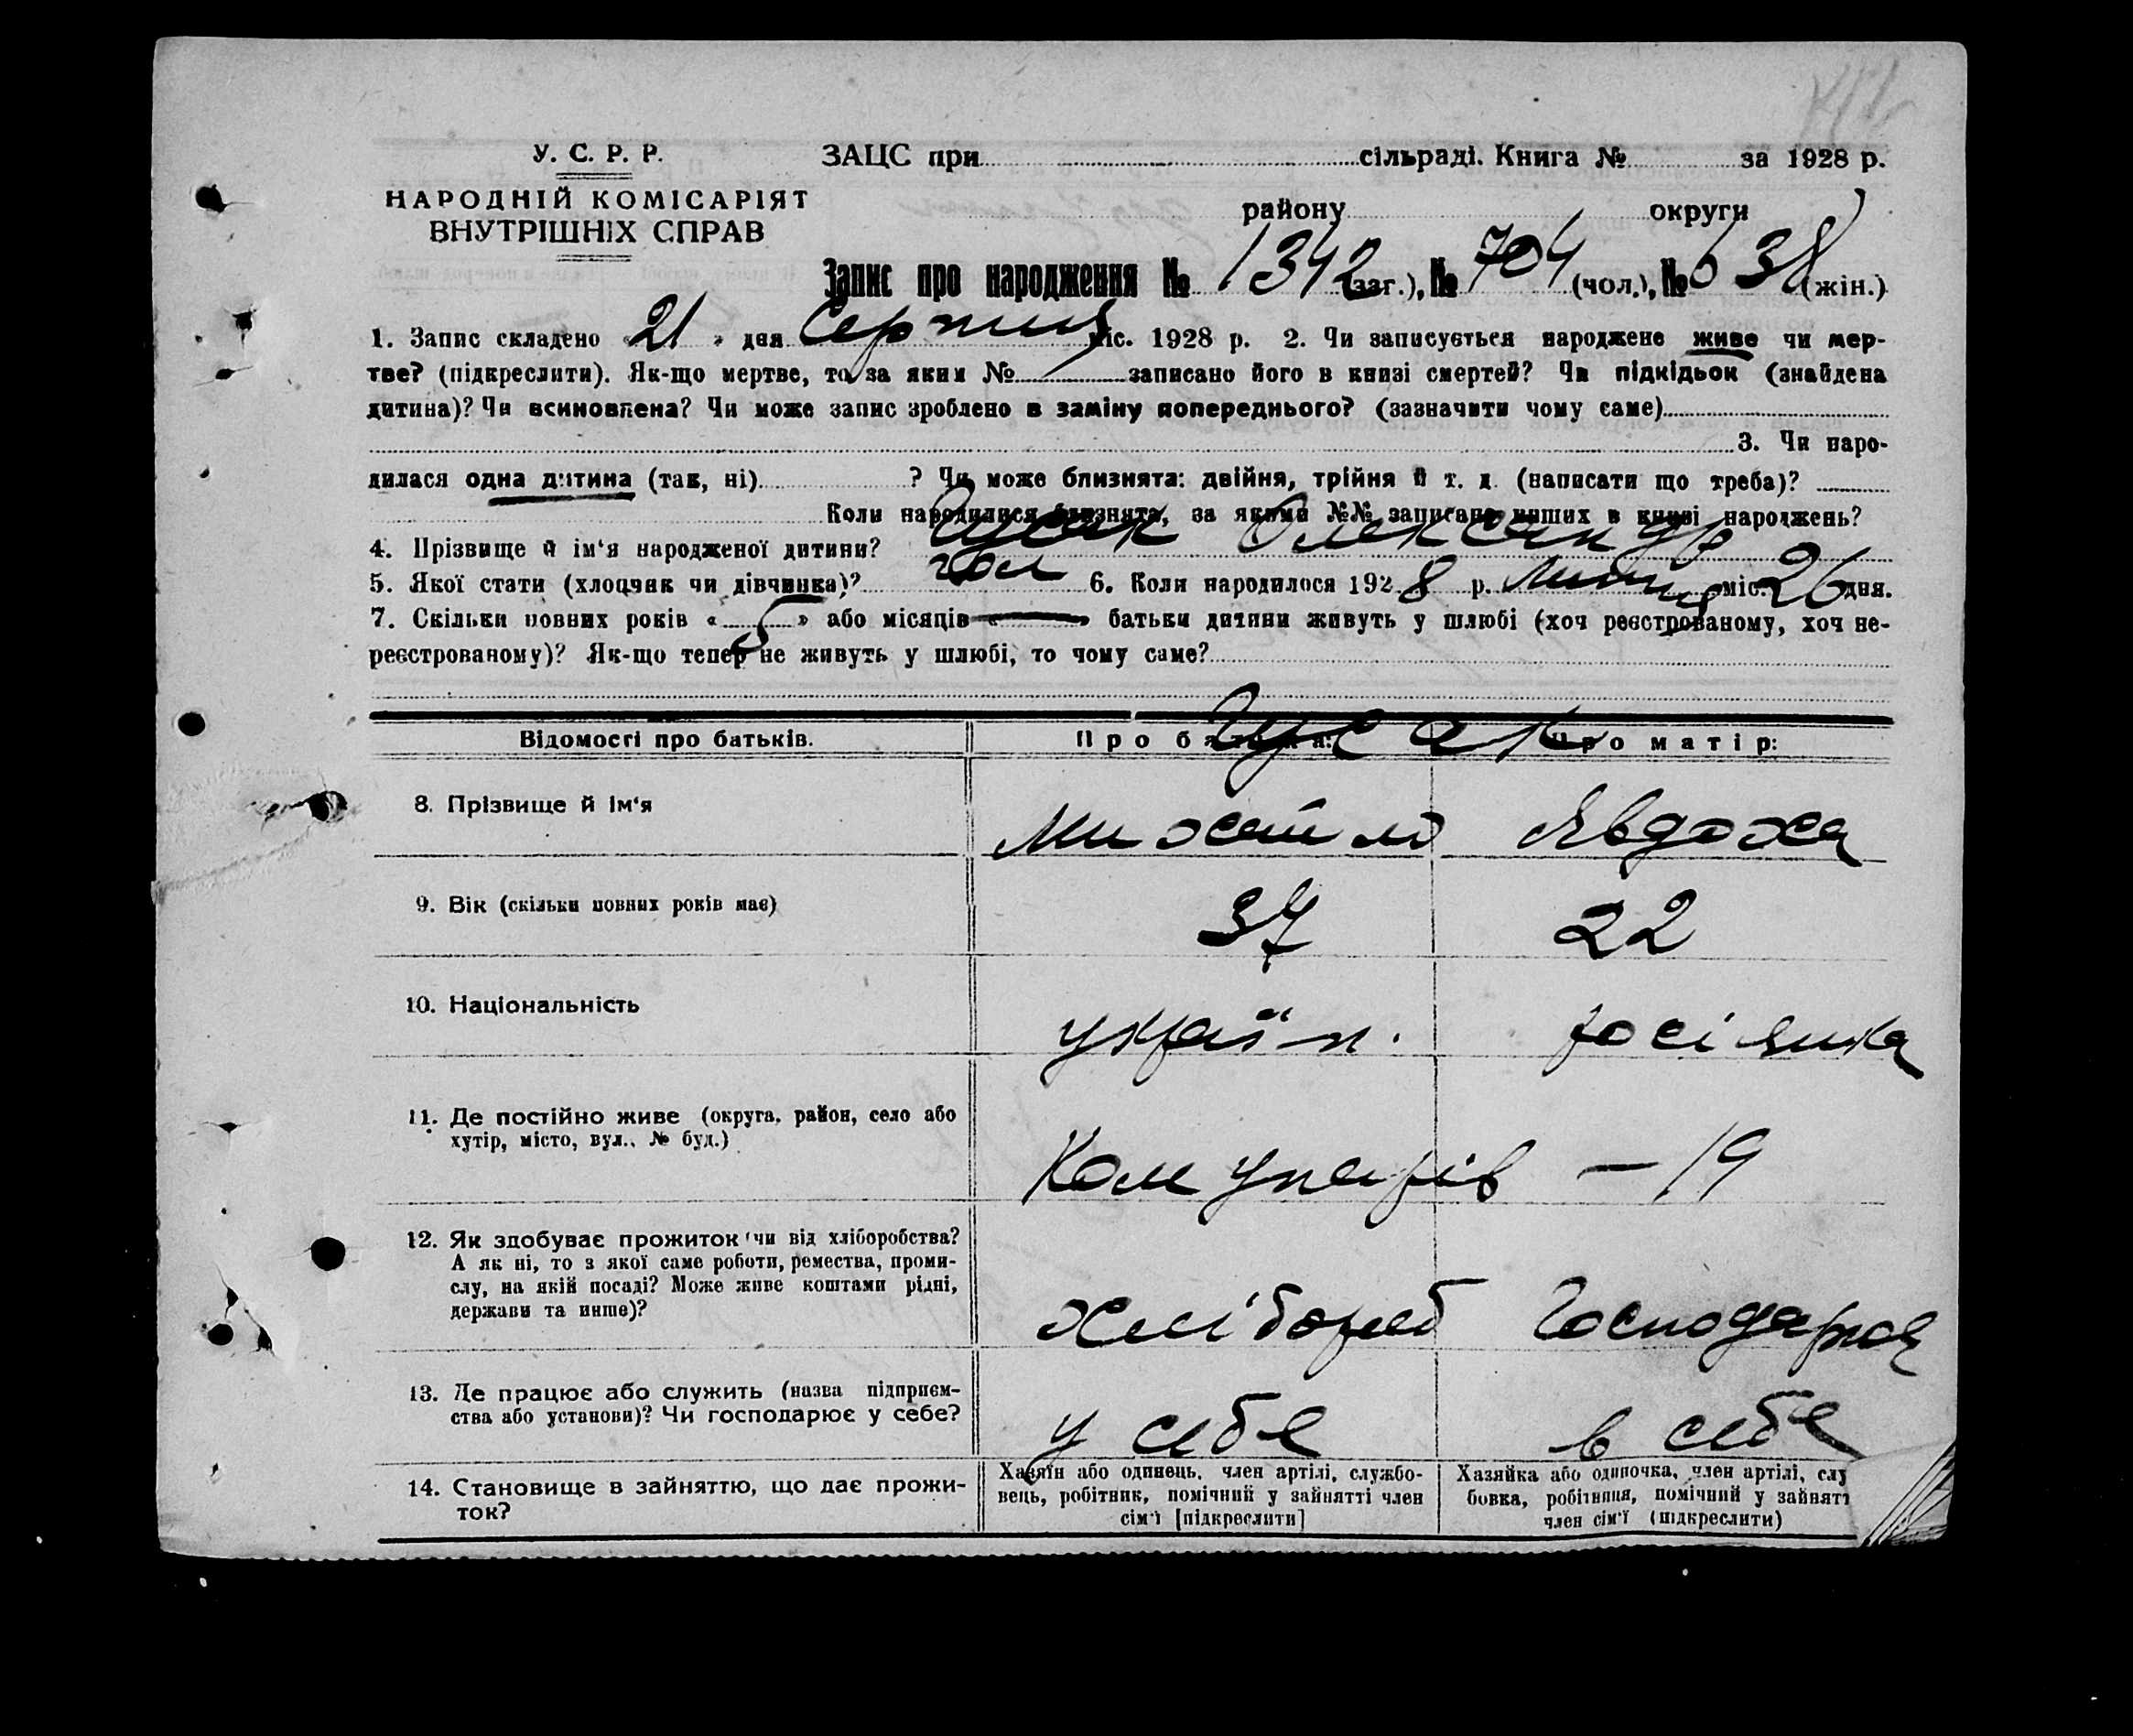 У. С. Р. Р.
НАРОДНІЙ КОМІСАРІЯТ
ВНУТРІШНІХ СПРАВ
ЗАЦС при сільраді. Книга № за 1928 р.
району округи
Запис про народження № 1342 (заг.), № 704 (чол.), № 638 (жін.)
1. Запис складено «21» дня Серпня міс. 1928 р. 2. Чи записується народжене живе чи мер-
тве? (підкреслити). Як-що мертве, то за яким № записано його в книзі смертей? Чи підкідьок (знайдена
дитина)? Чи всиновлена? Чи може запис зроблено в заміну попереднього? (зазначити чому саме)
3. Чи наро-
дилася одна дитина (так, ні) ? Чи може близнята: двійня, трійня й т. д. (написати що треба)?
Коли народилися близнята, за якими №№ записано инших в книзі народжень?
4. Прізвище й ім'я народженої дитини? Гусак Олександр
5. Якої стати (хлопчик чи дівчинка)? чол 6. Коли народилося 1928 р. липня міс. 26 дня.
7. Скільки повних років «5» або місяців «—» батьки дитини живуть у шлюбі (хоч реєстрованому, хоч не-
реєстрованому)? Як-що тепер не живуть у шлюбі, то чому саме?
Відомості про батьків. Про батька: Про матір:
Гусак
8. Прізвище й ім'я Михайло Явдоха
9. Вік (скільки повних років має) 37 22
10. Національність україн. росіянка
11. Де постійно живе (округа, район, село або
хутір, місто, вул., № буд.)
Комунарів — 19
12. Як здобуває прожиток (чи від хліборобства?
А як ні, то з якої саме роботи, ремества, проми-
слу, на якій посаді? Може живе коштами рідні,
держави та инше)?
хлібороб Господарка
13. Де працює або служить (назва підприєм-
ства або установи)? Чи господарює у себе?
у себе в себе
14. Становище в зайняттю, що дає прожи-
ток?
Хазяїн або одинець, член артілі, службо-
вець, робітник, помічний у зайнятті член
сім'ї [підкреслити]
Хазяйка або одиночка, член артілі, слу
бовка, робітниця, помічний у зайнят
член сім'ї (підкреслити)